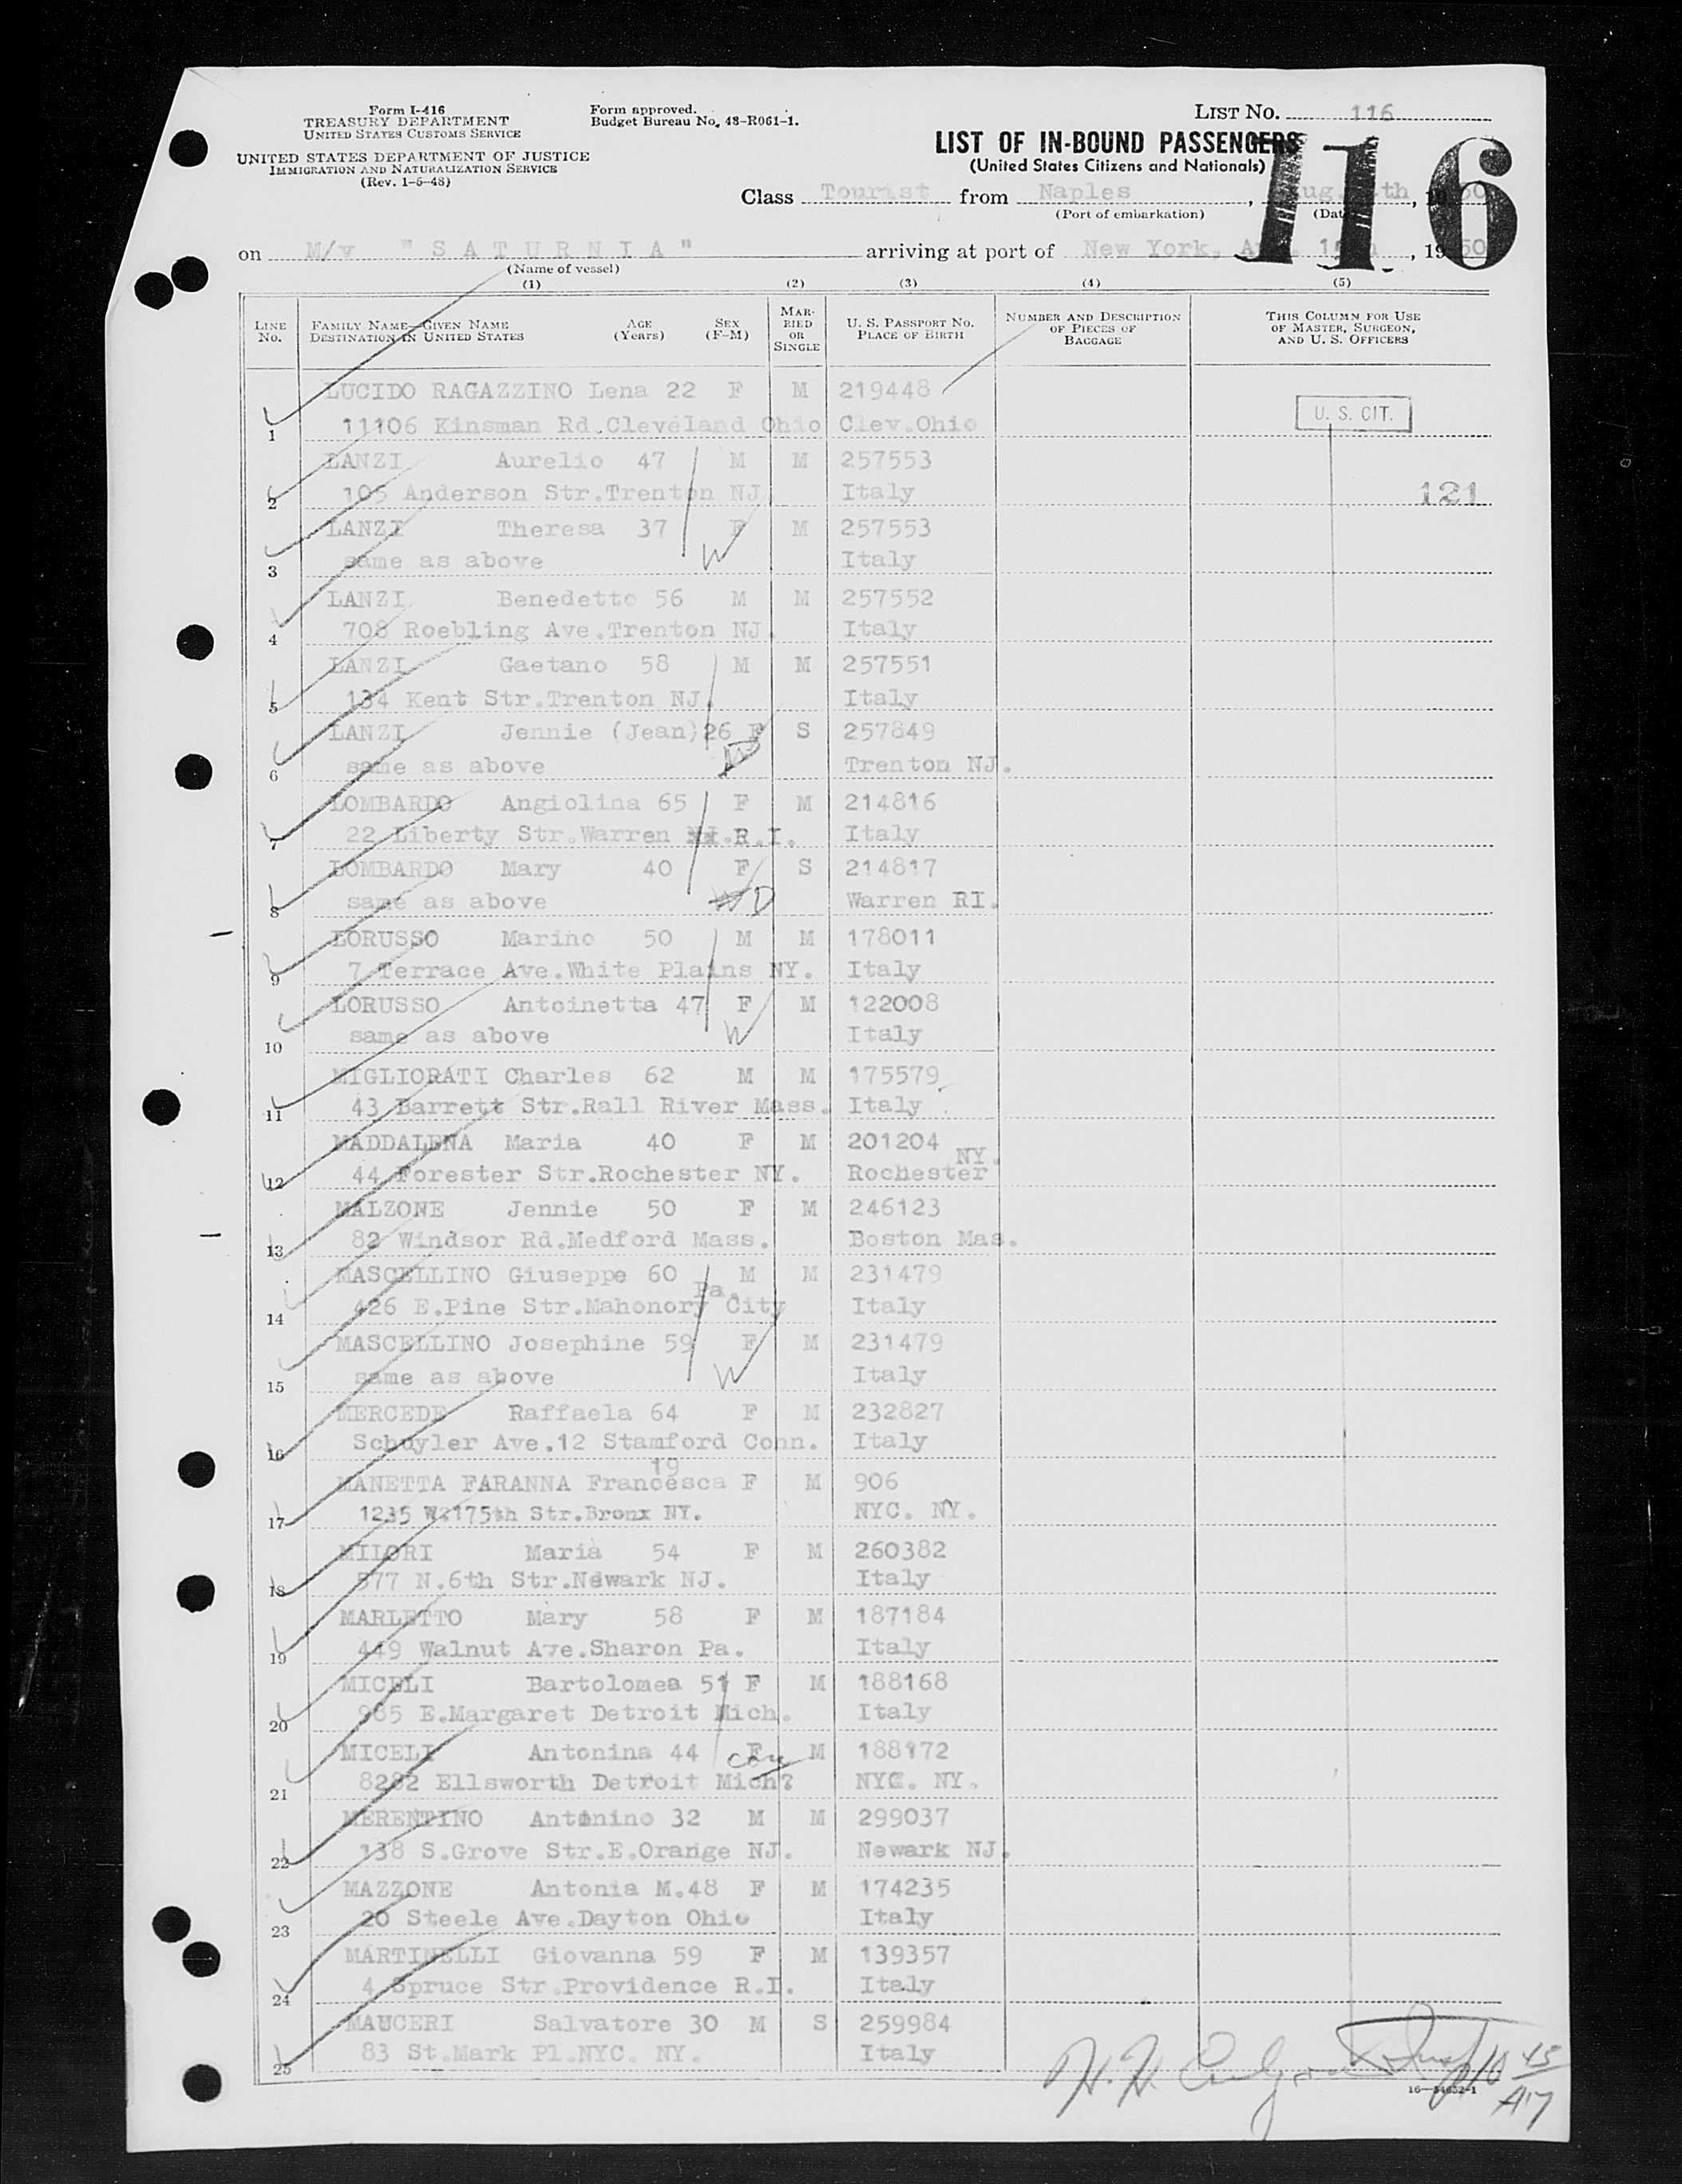 Form I-416
TREASURY DEPARTMENT
UNITED STATES CUSTOMS SERVICE
UNITED STATES DEPARTMENT OF JUSTICE
IMMIGRATION AND NATURALIZATION SERVICE
(Rev. 1-6-48)
Form approved.
Budget Bureau No. 48-R061-1.
LIST NO. 116
LIST OF IN-BOUND PASSENGERS
(United States Citizens and Nationals)
116
Class Tourist from Naples, Aug. th, 1950
(Port of embarkation) (Date)
on M/v "SATURNIA" arriving at port of New York, 1950
(Name of vessel)
(1) (2) (3) (4) (5)
LINE No. FAMILY NAME—GIVEN NAME DESTINATION IN UNITED STATES AGE (Years) SEX (F-M) MARRIED OR SINGLE U. S. PASSPORT NO. PLACE OF BIRTH NUMBER AND DESCRIPTION OF PIECES OF BAGGAGE THIS COLUMN FOR USE OF MASTER, SURGEON, AND U. S. OFFICERS
LUCIDO RAGAZZINO Lena 22 F M 219448
1 11106 Kinsman Rd.Cleveland Ohio Clev.Ohio U. S. CIT.
LANZI Aurelio 47 M M 257553
2 105 Anderson Str.Trenton NJ. Italy 121
LANZI Theresa 37 F M 257553
3 same as above W Italy
LANZI Benedetto 56 M M 257552
4 708 Roebling Ave.Trenton NJ. Italy
LANZI Gaetano 58 M M 257551
5 134 Kent Str.Trenton NJ. Italy
LANZI Jennie (Jean) 26 F S 257849
6 same as above D Trenton NJ.
LOMBARDO Angiolina 65 F M 214816
7 22 Liberty Str.Warren R.I. Italy
LOMBARDO Mary 40 F S 214817
8 same as above D Warren RI.
LORUSSO Marino 50 M M 178011
9 7 Terrace Ave.White Plains NY. Italy
LORUSSO Antoinetta 47 F M 122008
10 same as above W Italy
MIGLIORATI Charles 62 M M 175579
11 43 Barrett Str.Rall River Mass. Italy
MADDALENA Maria 40 F M 201204 NY.
12 44 Forester Str.Rochester NY. Rochester
MALZONE Jennie 50 F M 246123
13 82 Windsor Rd.Medford Mass. Boston Mas.
MASCELLINO Giuseppe 60 M M 231479
Pa.
14 426 E.Pine Str.Mahonory City Italy
MASCELLINO Josephine 59 F M 231479
15 same as above W Italy
MERCEDE Raffaela 64 F M 232827
16 Schuyler Ave.12 Stamford Conn. Italy
19
MANETTA FARANNA Francesca F M 906
17 1235 W.175th Str.Bronx NY. NYC. NY.
MIIORI Maria 54 F M 260382
18 577 N.6th Str.Newark NJ. Italy
MARLETTO Mary 58 F M 187184
19 449 Walnut Ave.Sharon Pa. Italy
MICELI Bartolomea 51 F M 188168
20 985 E.Margaret Detroit Mich. Italy
MICELI Antonina 44 F M 188172
21 8282 Ellsworth Detroit Mich? NYC. NY.
MERENTINO Antonino 32 M M 299037
22 138 S.Grove Str.E.Orange NJ. Newark NJ.
MAZZONE Antonia M.48 F M 174235
23 20 Steele Ave.Dayton Ohio Italy
MARTINELLI Giovanna 59 F M 139357
24 4 Spruce Str.Providence R.I. Italy
MAUCERI Salvatore 30 M S 259984
25 83 St.Mark Pl.NYC. NY. Italy